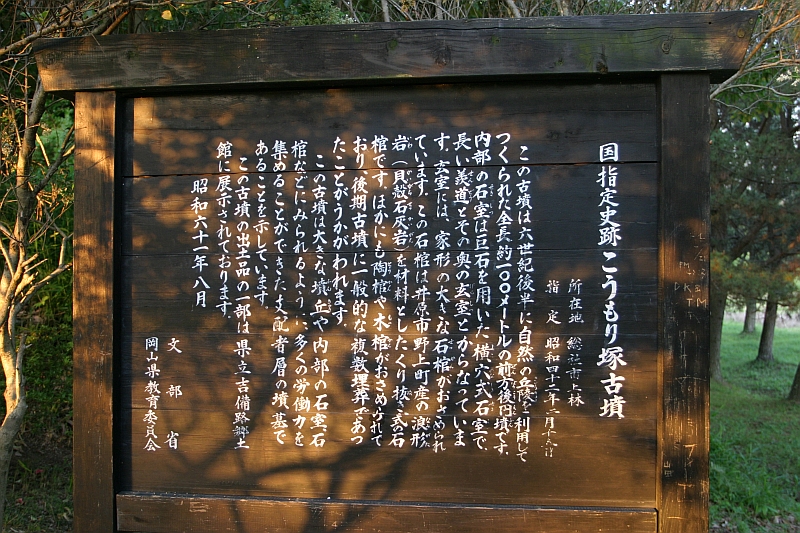 国指定史跡 こうもり塚古墳
所在地 総社市上林
指定 昭和四十二年二月十六日
この古墳は六世紀後半に自然の丘陵を利用して
つくられた全長約一〇〇メートルの前方後円墳です。
内部の石室は巨石を用いた横穴式石室で、
長い羨道とその奥の玄室とからなっていま
す。玄室には、家形の大きな石棺がおさめられ
ています。この石棺は井原市野上町産の浪形
岩(貝殻石灰岩)を材料としたくり抜き式の石
棺です。ほかにも陶棺や木棺がおさめられて
おり、後期古墳に一般的な複数埋葬であっ
たことがうかがわれます。
この古墳は大きな墳丘や内部の石室、石
棺などにみられるように、多くの労働力を
集めることができた支配者層の墳墓で
あることを示しています。
この古墳の出土品の一部は県立吉備路郷土
館に展示されております。
昭和六十一年八月
文部省
岡山県教育委員会